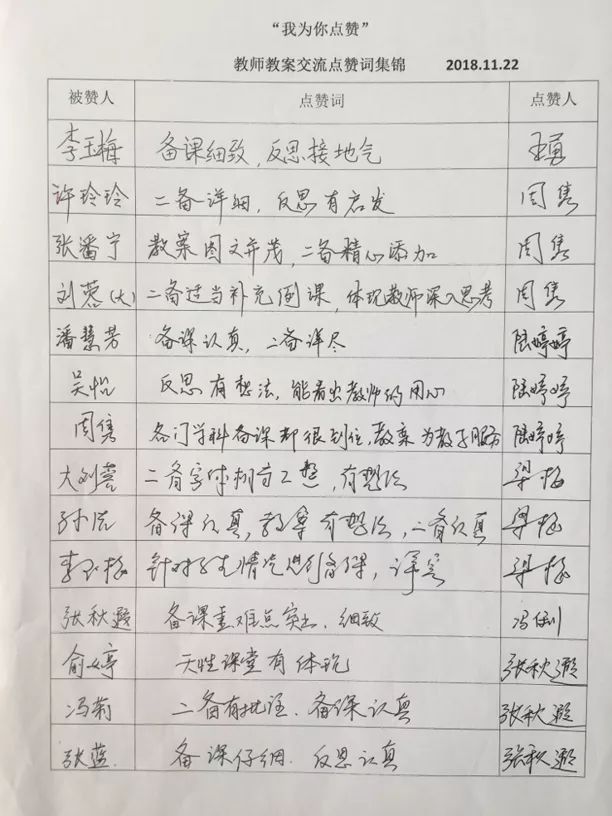 “我为你点赞”
教师教案交流点赞词集锦 2018.11.22
被赞人 点赞词 点赞人
李玉梅 备课细致,反思接地气 王勇
许玲玲 二备详细,反思有启发 周隽
张潘宁 教案图文并茂,二备精心添加 周隽
刘蓉(大) 二备适当补充例课,体现教师深入思考 周隽
潘慧芳 备课认真,二备详尽 陆婷婷
吴怡 反思有想法,能看出教师的用心 陆婷婷
周隽 各门学科备课都很到位,教案为教学服务 陆婷婷
大刘蓉 二备字体相当工整,有想法 梁梅
孙 备课认真,教学有想法,二备认真 梁梅
李玉梅 针对学生情况进行备课,详实 梁梅
张秋遐 备课重难点突出、细致 冯俐
俞婷 天性课堂有体现 张秋遐
冯莉 二备有批注、备课认真 张秋遐
张蓝. 备课仔细、反思认真 张秋遐